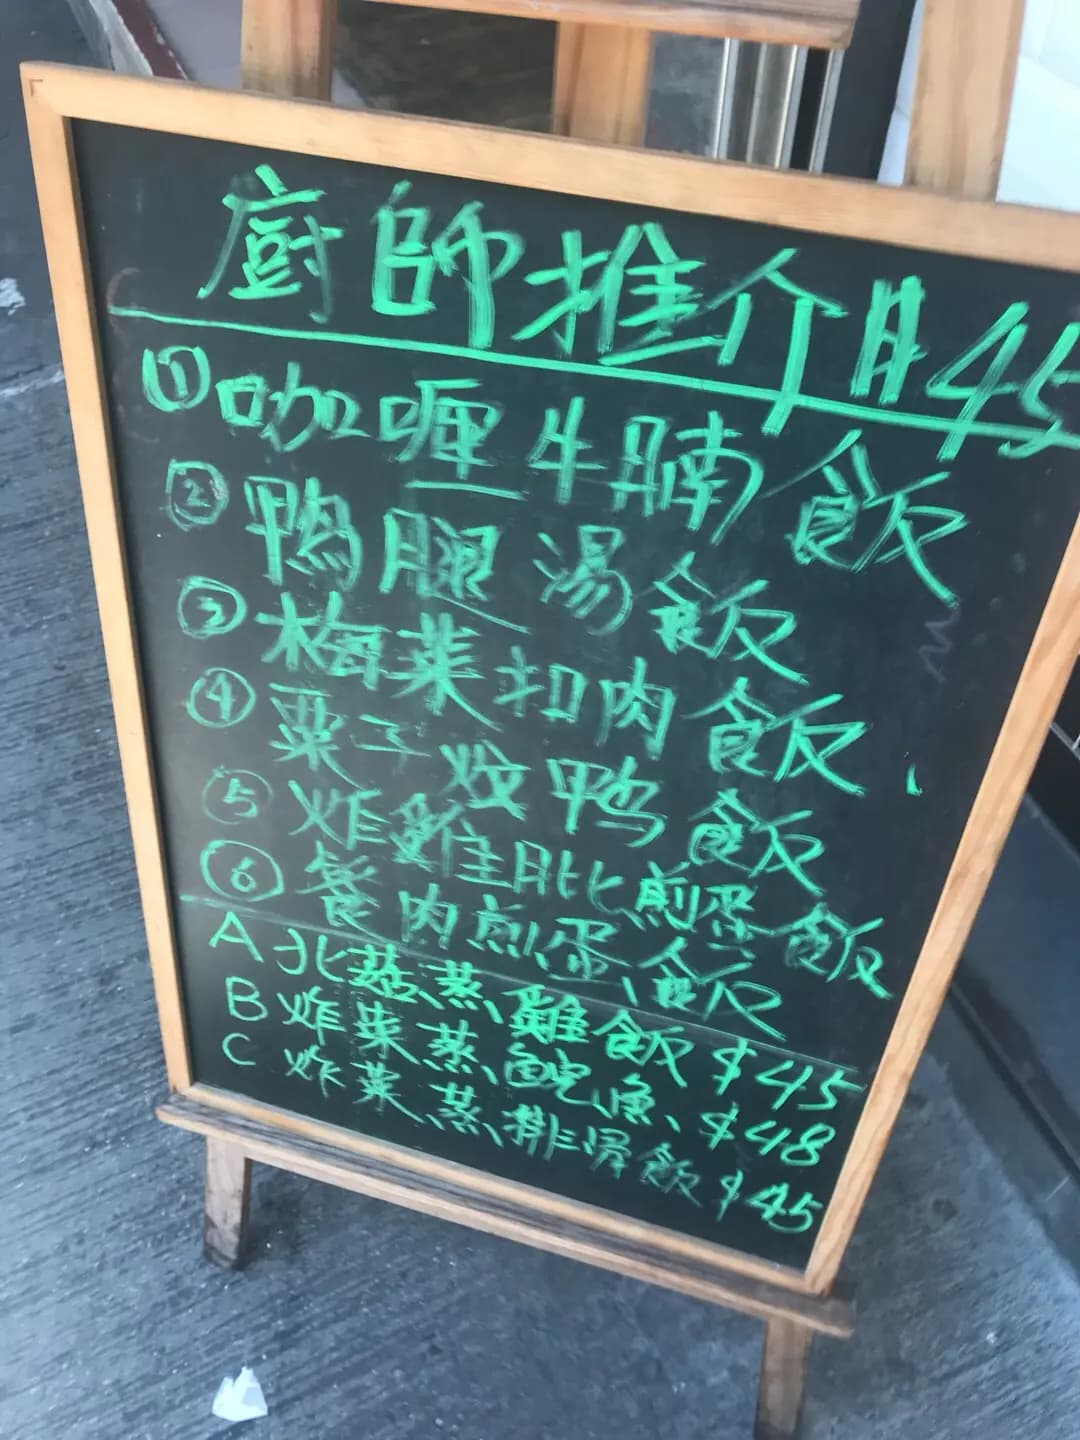 廚師推介 $45
① 咖喱牛腩飯
② 鴨腿湯飯
③ 梅菜扣肉飯
④ 栗子炆鴨飯
⑤ 炸雞肶煎蛋飯
⑥ 餐肉煎蛋飯
A 北菇蒸雞飯 $45
B 炸菜蒸鯇魚 $48
C 炸菜蒸排骨飯 $45